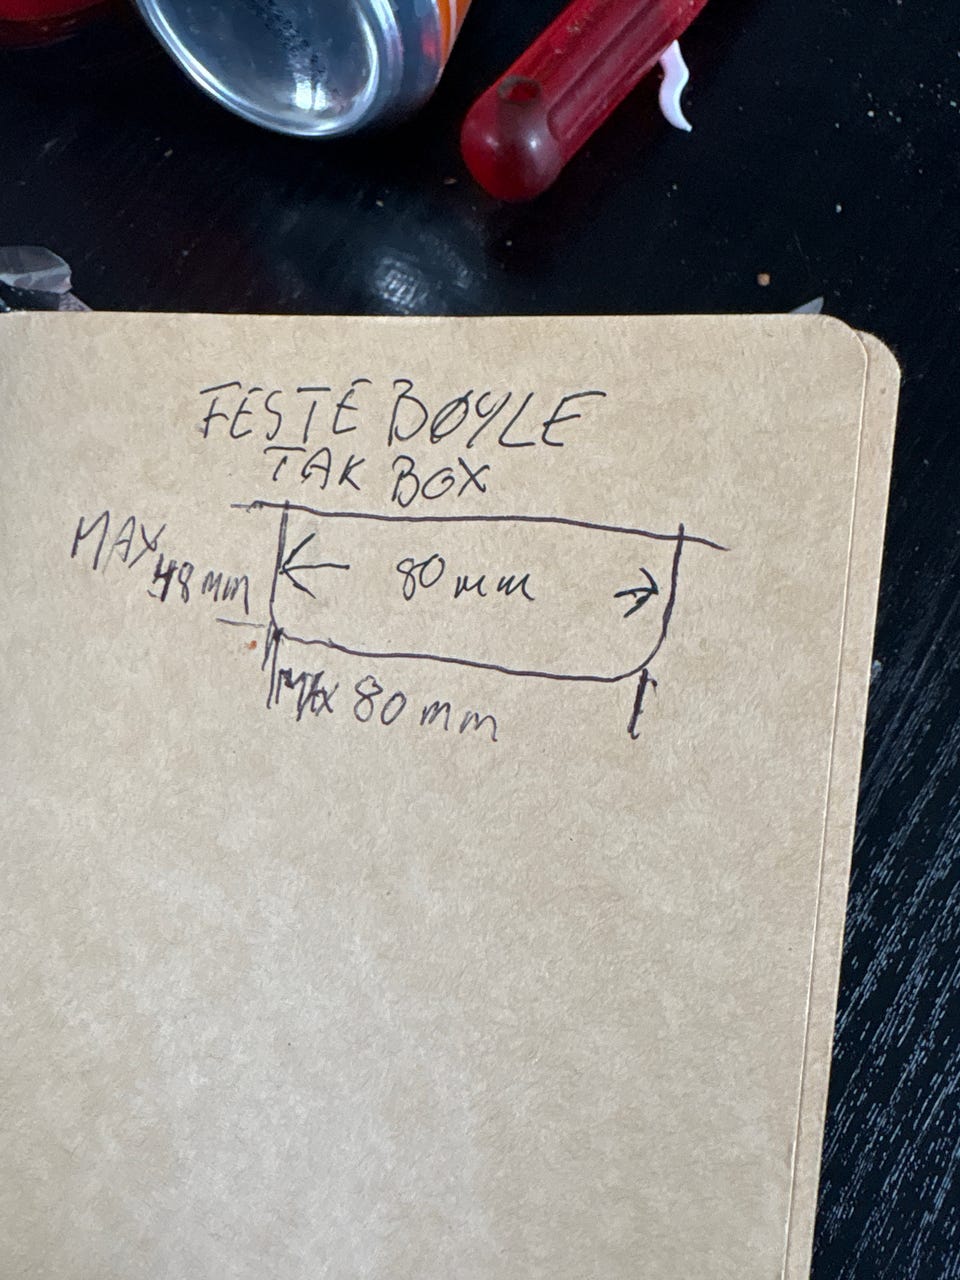 FESTE BØYLE
TAK BOX
MAX
48 mm
80 mm
MAX 80 mm